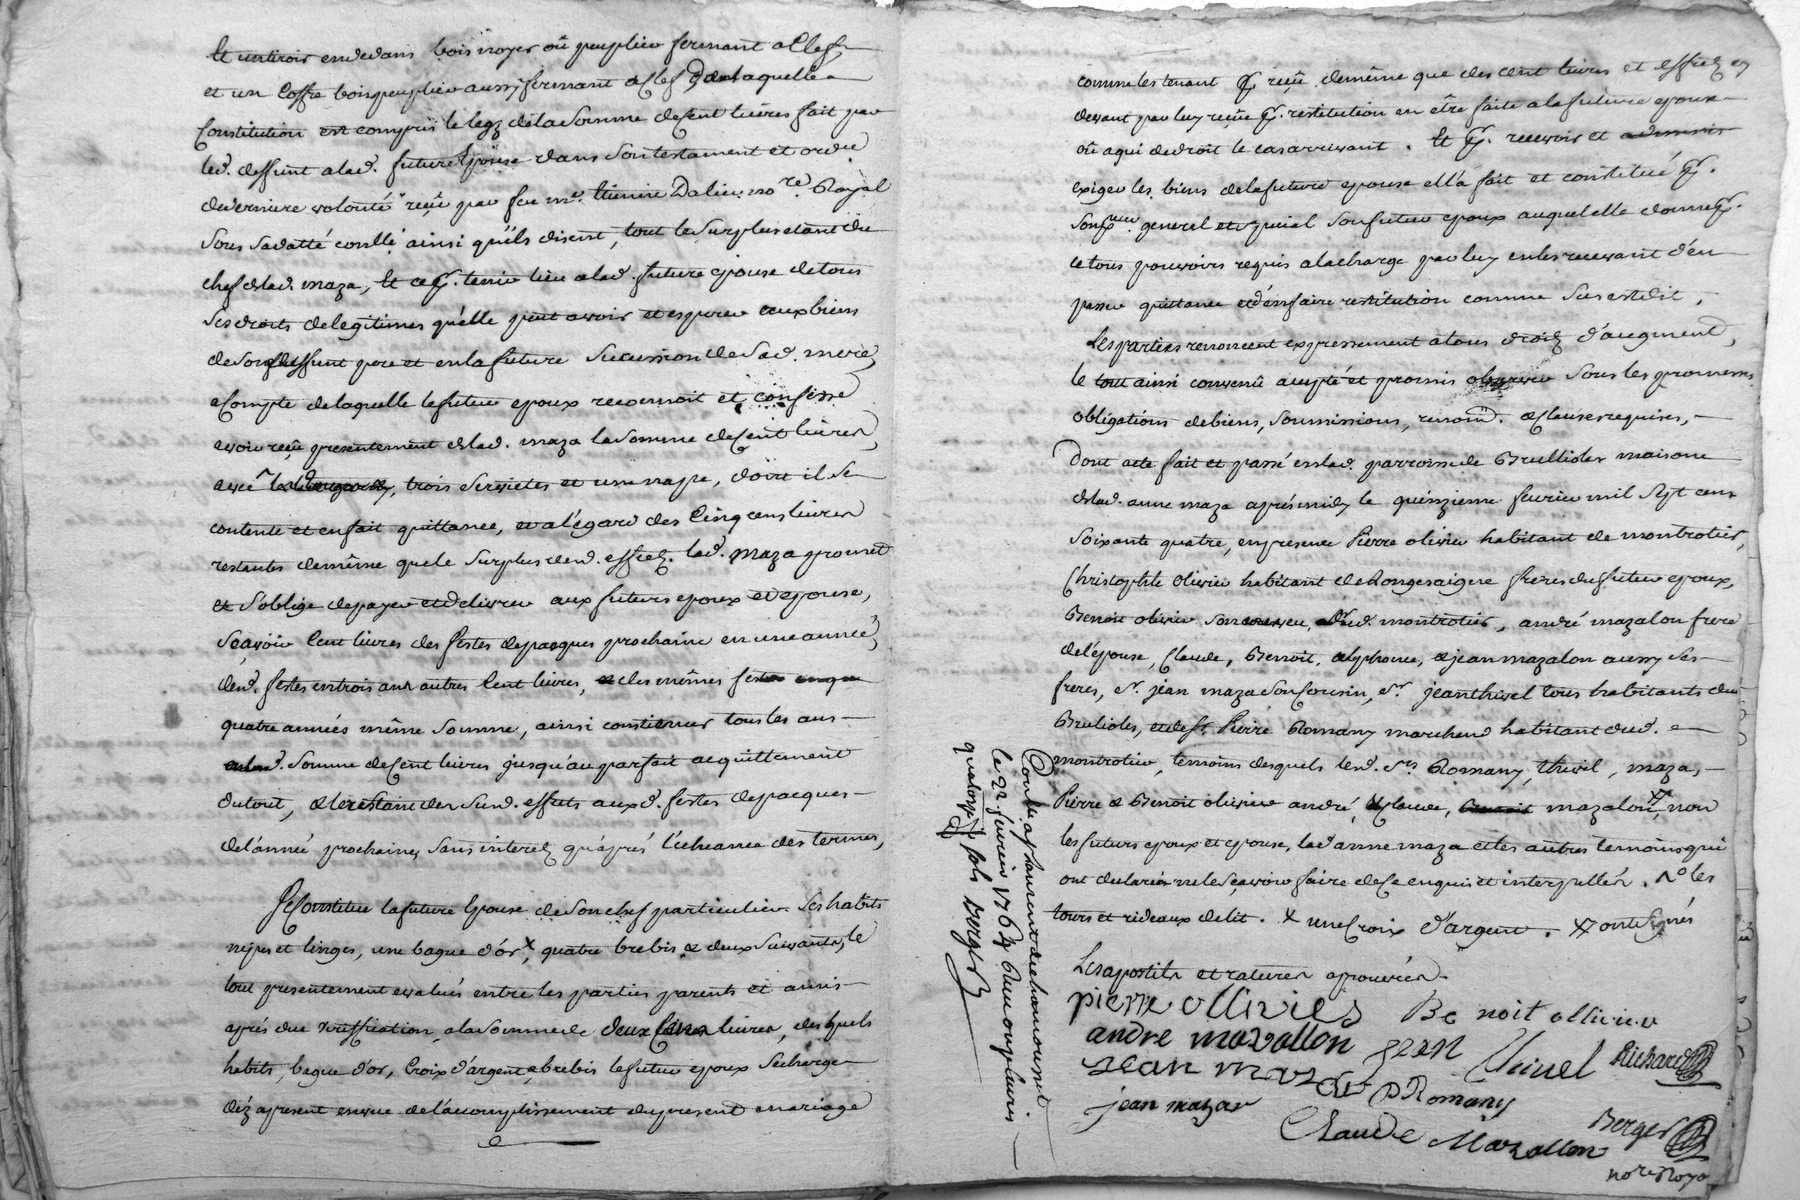 et un tiroir en dedans bois noyer ou peuplier fermant a Clef
et un Coffre bois peuplier aussy fermant a Clef Dans laquelle
Constitution est compris le legz de la Somme de Cent livres fait par
led. deffunt a lad. future Epouse dans Son testament et ordre
de derniere volonté reçû par feu me. Etienne Dalieu nore. Royal
Sous Sa datte conllé ainsi qu'ils disent, tout le Surplus etant du
chef de lad. maza, Et ce pr. tenir lieu a lad. future epouse de tous
Ses droits de legitimes qu'elle peut avoir et esperer aux biens
de Son deffunt pere et en la future Sucession de Sad. mere,
a Compte de laquelle le futur epoux reconnoit et confesse
avoir reçû presentement de lad. maza la Somme de Cent livres,
avec trois Serviettes et une nappe, dont il Se
contente et en fait quittance, et a l'égard des Cinq cens livres
restantes de même que le Surplus desd. effetz. lad. Maza promet
et S'oblige de payer et delivrer aux futurs epoux et epouse,
Sçavoir Cent livres des festes de pacques prochaine en une année,
desd. festes en trois ans autres Cent livres, et des mêmes festes en
quatre années même Somme, ainsi continuer tous les ans
Somme de Cent livres jusqu'au parfait acquittement
du tout, et le restant des Susd. effets auxd. festes de pacques
de l'année prochaine, Sans interetz qu'aprés l'écheance des termes,
Se Constitue la future Epouse de Son chef particulier Ses habits
nipes et linges, une bague d'or, x quatre brebis et deux Suivants, le
tout presentement evalués entre les parties parents et amis
aprés due veriffication, a la Somme de deux Cens livres, desquels
habits, bague d'or, Croix d'argent, et brebis le futur epoux Se charge
déz a present en vue de l'accomplissement du present mariage
comme les tenant pr. reçû de même que des cent livres et effetz cy
devant par luy reçûs pr. restitution en être faite a la future epouse
ou a qui de droit le cas arrivant. Et pr. recevoir et
exiger les biens de la future epouse elle a fait et constitué pr.
Son procureur general et Special Son futur epoux auquel elle donne pr.
ce tous pouvoirs requis a la charge par luy en les recevant d'en
passer quittance et d'en faire restitution comme Sus est dit,
Les parties renoncent expressement a tous droitz d'augment,
le tout ainsi convenû accepté et promis observer Sous les promesses
obligations de biens, Soumissions, renoncions. et Clauses requises,
Dont acte fait et passé en lad. parroisse de Brullioles maison
de lad. anne maza aprés midy le quinzieme fevrier mil Sept cens
Soixante quatre, en presence Pierre olivier habitant de montrotier,
Christophle olivier habitant de Longesaigne freres du futur epoux,
Benoit olivier Son neveu, dud. montrotier, andré mazalon frere
de l'épouse, Claude, Benoit, alphonse, et jean mazalon aussy Ses
freres, Sr. jean maza Son Cousin, Sr. jean thivel tous habitants de
Brulioles, et de Sr. Pierre Romany marchand habitant dud.
montrotier, temoins desquels lesd. Srs. Romany, thivel, maza,
Pierre et Benoit olivier andré, et Claude, mazalon, non
les futurs epoux et epouse, lad. anne maza et les autres temoins qui
ont declaré ne le Sçavoir faire de Ce enquis et interpellés. les
tours et rideaux de lit. x une Croix d'argent. ont Signés
Les apostils et ratures aprouvées.
pierre ollivier Benoit ollivier
andre mazallon jean thivel Richard
jean maza P Romany
jean mazar
Claude Mazallon Berger
nore. Roya
Conllé a St Laurent de chamousset
le 22. fevrier 1764. Reçu onze livres
quatorze Sols Berger